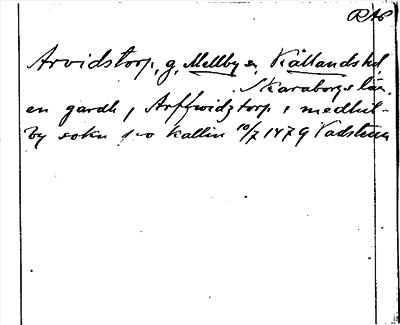 RAP
Arvidstorp, g, Mellby sn Kållands hd,
Skaraborgs län.
en gardh j Arffwidztorp i medhel-
by sokn po kallin 10/7 1479 Vadstena